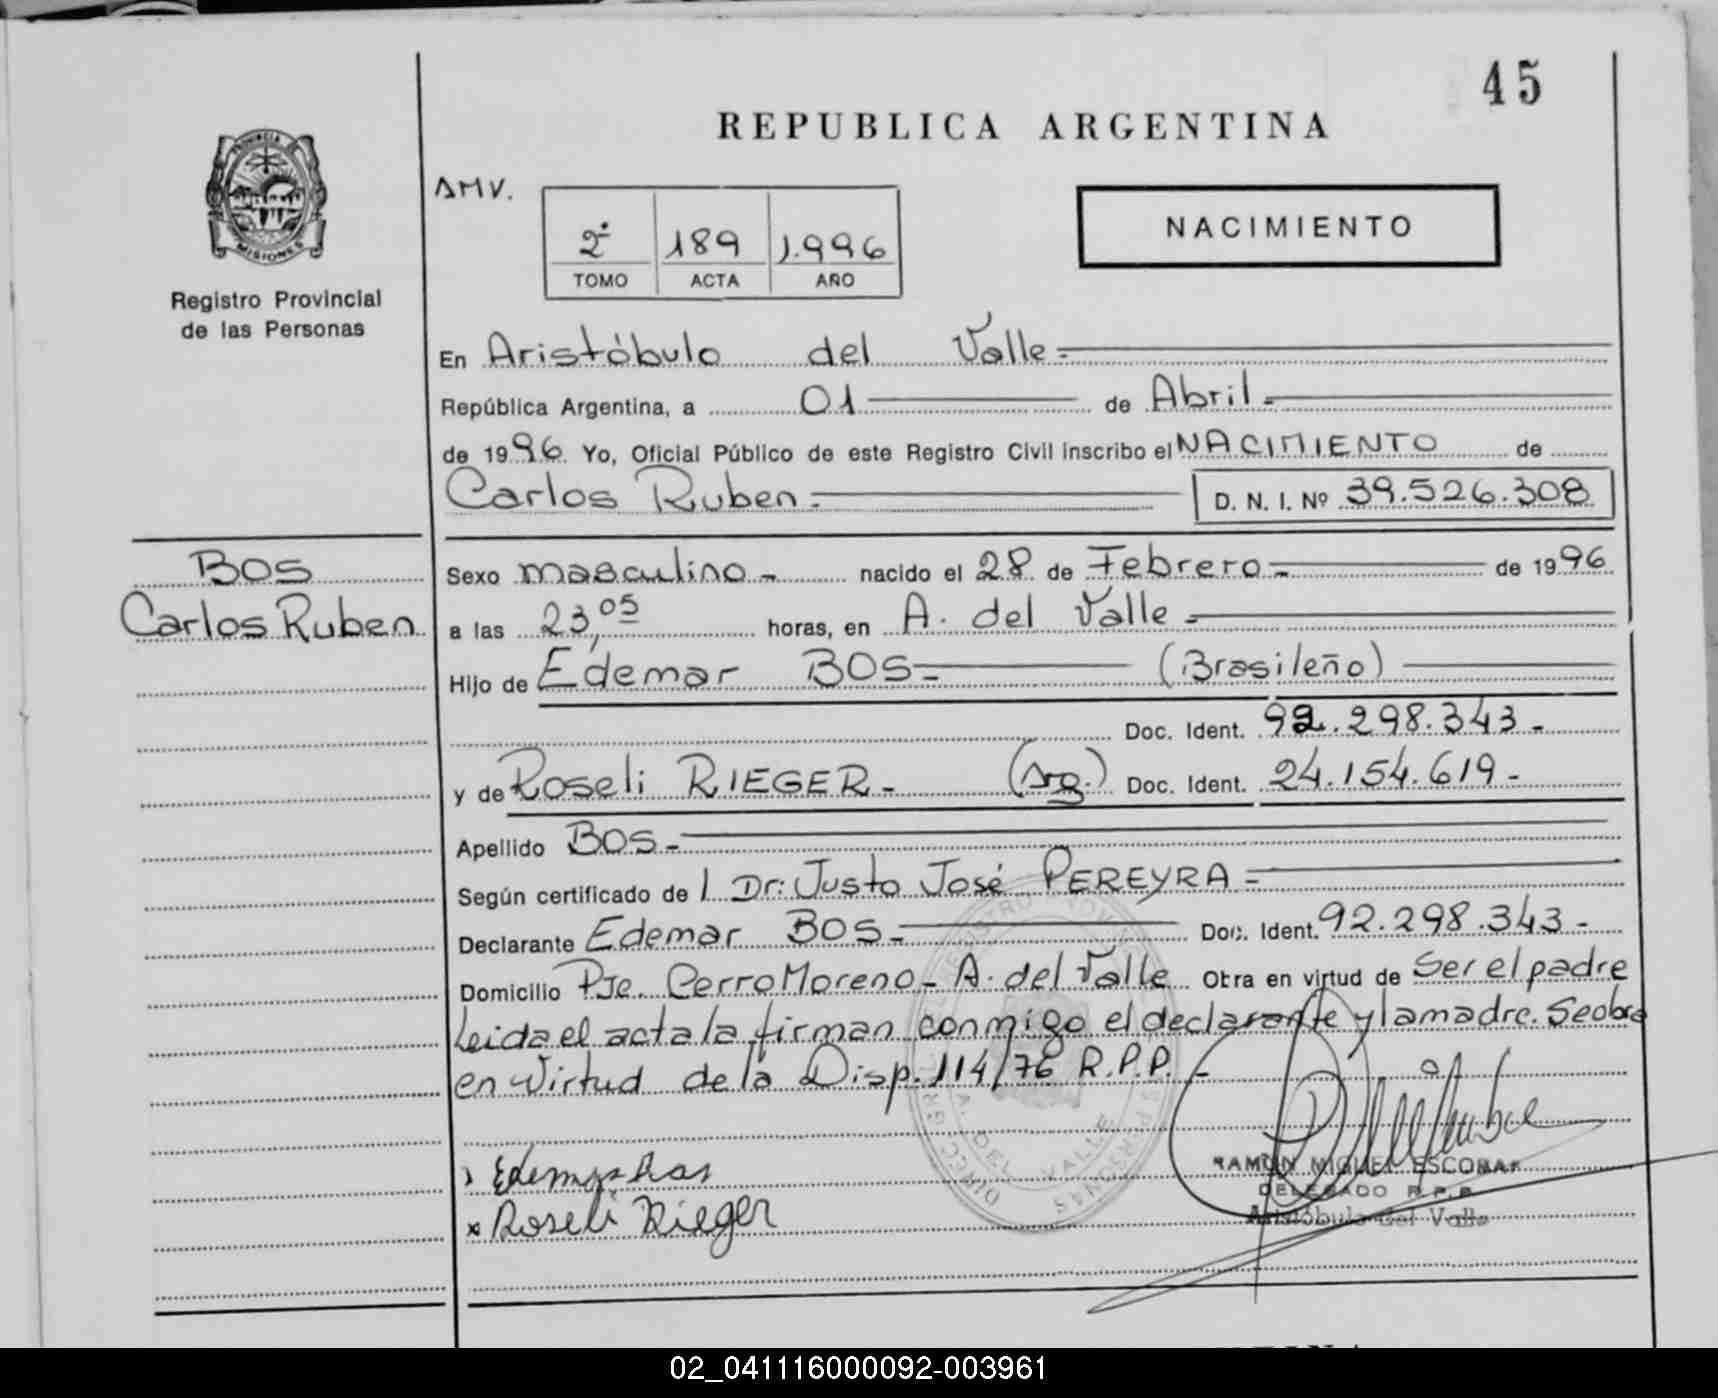 45
REPUBLICA ARGENTINA
PROVINCIA DE
MISIONES
Registro Provincial
de las Personas
AMV.
2º 189 1.996
TOMO ACTA AÑO
NACIMIENTO
En Aristóbulo del Valle.
República Argentina, a 01 de Abril.
de 1996. Yo, Oficial Público de este Registro Civil inscribo el NACIMIENTO de
Carlos Ruben. D. N. I. Nº 39.526.308
BOS
Carlos Ruben
Sexo masculino - nacido el 28 de Febrero - de 1996
a las 23,05 horas, en A. del Valle -
Hijo de Edemar BOS - (Brasileño)
Doc. Ident. 92.298.343 -
y de Roseli RIEGER - (Arg.) Doc. Ident. 24.154.619 -
Apellido BOS -
Según certificado de l Dr: Justo José PEREYRA -
Declarante Edemar BOS - Doc. Ident. 92.298.343 -
Domicilio Pje. Cerro Moreno - A. del Valle Otra en virtud de Ser el padre
Leida el acta la firman conmigo el declarante y la madre. Se obra
en Virtud de la Disp. 114/76 R.P.P. -
A. DEL VALLE
Roseli Rieger
RAMON MIGUEL ESCOBAR
DELEGADO R.P.P.
Aristóbulo del Valle
02_041116000092-003961